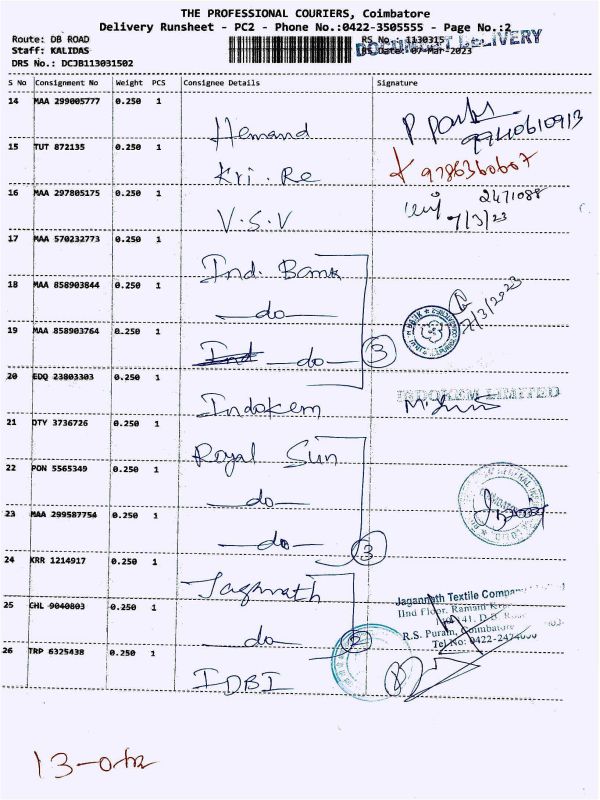 THE PROFESSIONAL COURIERS, Coimbatore
Delivery Runsheet - PC2 - Phone No.:0422-3505555 - Page No.:2
Route: DB ROAD
RS No.: 1130315
DOCUMENT DELIVERY
Staff: KALIDAS
RS Date: 07-Mar-2023
DRS No.: DCJB113031502
S No Consignment No Weight PCS Consignee Details Signature
14 MAA 299005777 0.250 1 Hemand
99410610913
15 TUT 872135 0.250 1 Kri. Re
9786360607
16 MAA 297805175 0.250 1 V.S.V
2471088
7/3/23
17 MAA 570232773 0.250 1 Ind. Bank
18 MAA 858903844 0.250 1 do
7/3/2023
19 MAA 858903764 0.250 1 Ind do 3
20 EDQ 23803303 0.250 1 Indokem
INDOKEM LIMITED
21 DTY 3736726 0.250 1 Royal Sun
22 PON 5565349 0.250 1 do
23 MAA 299587754 0.250 1 do 3
24 KRR 1214917 0.250 1 Jagannath
Jagannath Textile Company
IInd Floor, Ramani
141, D.B. Road
25 CHL 9040803 0.250 1 do 2
R.S. Puram, Coimbatore
Tel No: 0422-
26 TRP 6325438 0.250 1 IDBI
13-